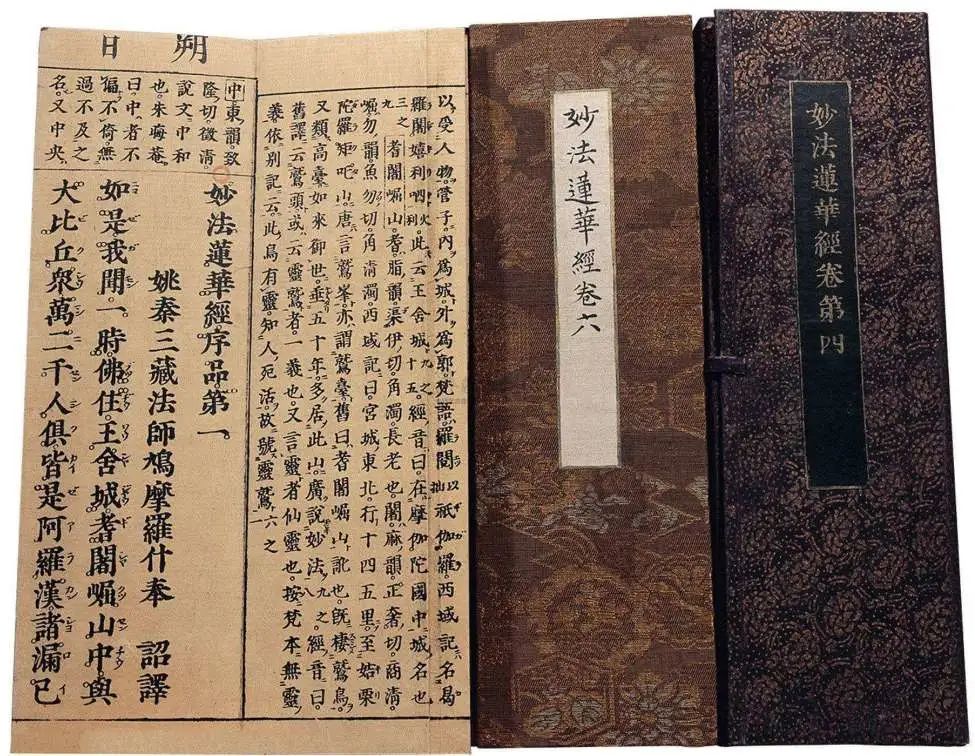 妙法蓮華經卷第四
妙法蓮華經卷六
以受人物管子内爲城外爲郭梵語羅閲祇伽羅西域記名曷
羅闍嬉利呬此云王舍城經音曰在摩伽陀國中城名也
耆闍崛山耆脂韻渠伊切角濁長老也闍麻韻正奢切商清
崛勿韻魚勿切角清濁西域記曰宮城東北行十四五里至姞栗
陀羅矩吒山唐言鷲峯亦謂鷲臺舊曰耆闍崛山訛也既棲鷲鳥
又類高臺如來御世垂五十年多居此山廣說妙法經音曰
舊譯云鷲頭或云靈鷲者一義也又言靈者仙靈也按梵本無靈
義依別記云此鳥有靈知人死活故號靈鷲
朔日
中東韻致
隆切徵清
說文中和
也朱晦菴
曰中者不
偏不倚無
過不及之
名又中央
妙法蓮華經序品第一
姚秦三藏法師鳩摩羅什奉 詔譯
如是我聞一時佛住王舍城耆闍崛山中與
大比丘衆萬二千人俱皆是阿羅漢諸漏已